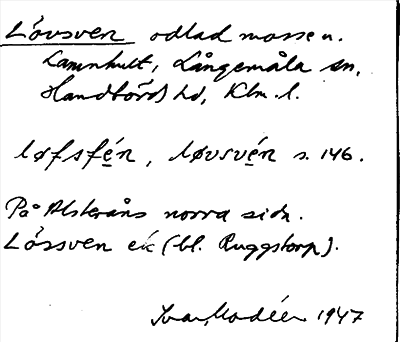 Lövsven odlad mosse n.
Lammhult, Långemåla sn,
Handbörds hd, Klm. l.
løfsfén, løvsvén s. 146.
På Alsteråns norra sida.
Lövsven ek (bl. Ruggstorp).
Ivar Modéer 1947